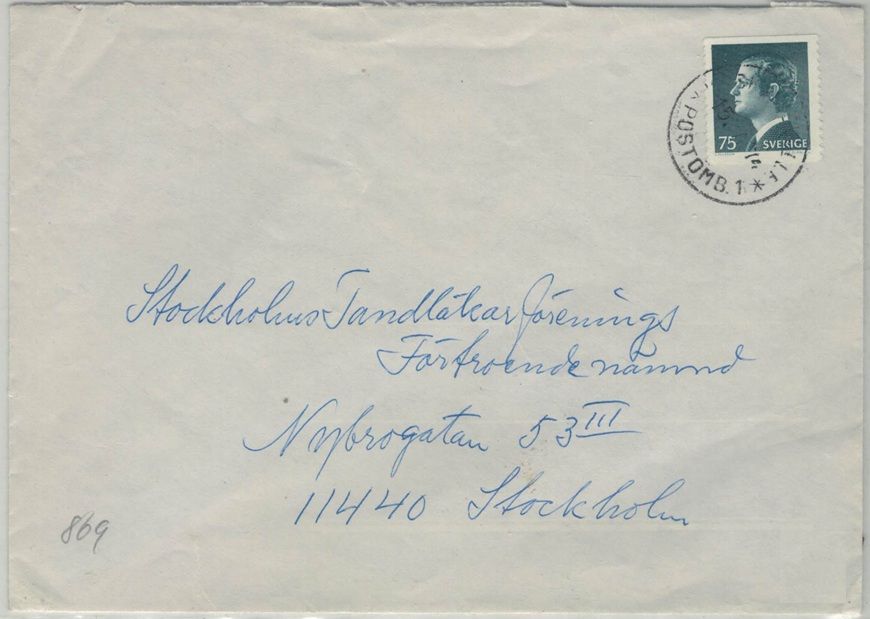 75 SVERIGE
POSTOMB. 1 *
Stockholms Tandläkarförenings
Förtroendenämnd
Nybrogatan 53 III
11440 Stockholm
869